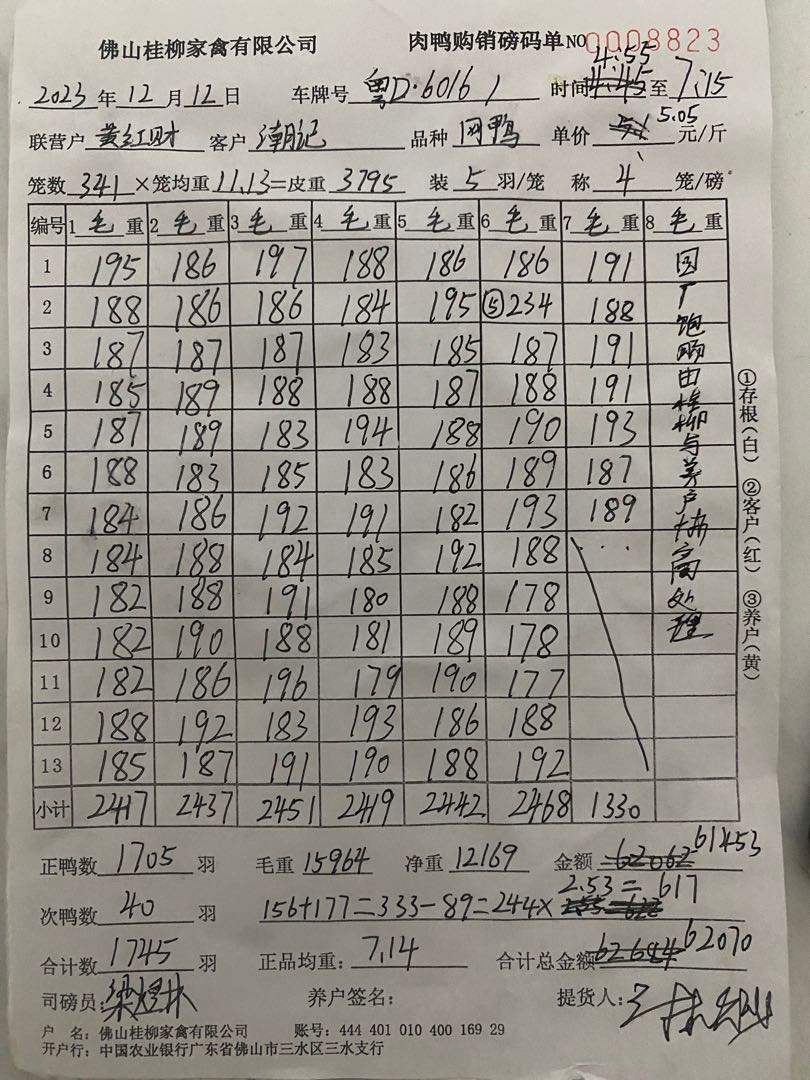 佛山桂柳家禽有限公司 肉鸭购销磅码单 NO 0008823
4:55
2023年12月12日 车牌号 粤D·6016J 时间 4:45 至 7:15
联营户 黄红财 客户 潮记 品种 网鸭 单价 5.1 5.05 元/斤
笼数 341 ×笼均重 11.13 =皮重 3795 装 5 羽/笼 称 4 笼/磅
编号 1 毛 重 2 毛 重 3 毛 重 4 毛 重 5 毛 重 6 毛 重 7 毛 重 8 毛 重
1 195 186 197 188 186 186 191 因
2 188 186 186 184 195 ⑤234 188 厂
3 187 187 187 183 185 187 191 饱肠
4 185 189 188 188 187 188 191 由桂
5 187 189 183 194 188 190 193 柳与
6 188 183 185 183 186 189 187 养
7 184 186 192 191 182 193 189 户
8 184 188 184 185 192 188 · · · 商
9 182 188 191 180 188 178 处
10 182 190 188 181 189 178 理
11 182 186 196 179 190 177
12 188 192 183 193 186 188
13 185 187 191 190 188 192
小计 2417 2437 2451 2419 2442 2468 1330
①存根(白) ②客户(红) ③养户(黄)
正鸭数 1705 羽 毛重 15964 净重 12169 金额 62062 61453
次鸭数 40 羽 156+177=333-89=244× 2.55=622 2.53=617
合计数 1745 羽 正品均重: 7.14 合计总金额 62684 62070
司磅员: 梁煜林 养户签名: 提货人:
户 名: 佛山桂柳家禽有限公司 账号: 444 401 010 400 169 29
开户行: 中国农业银行广东省佛山市三水区三水支行